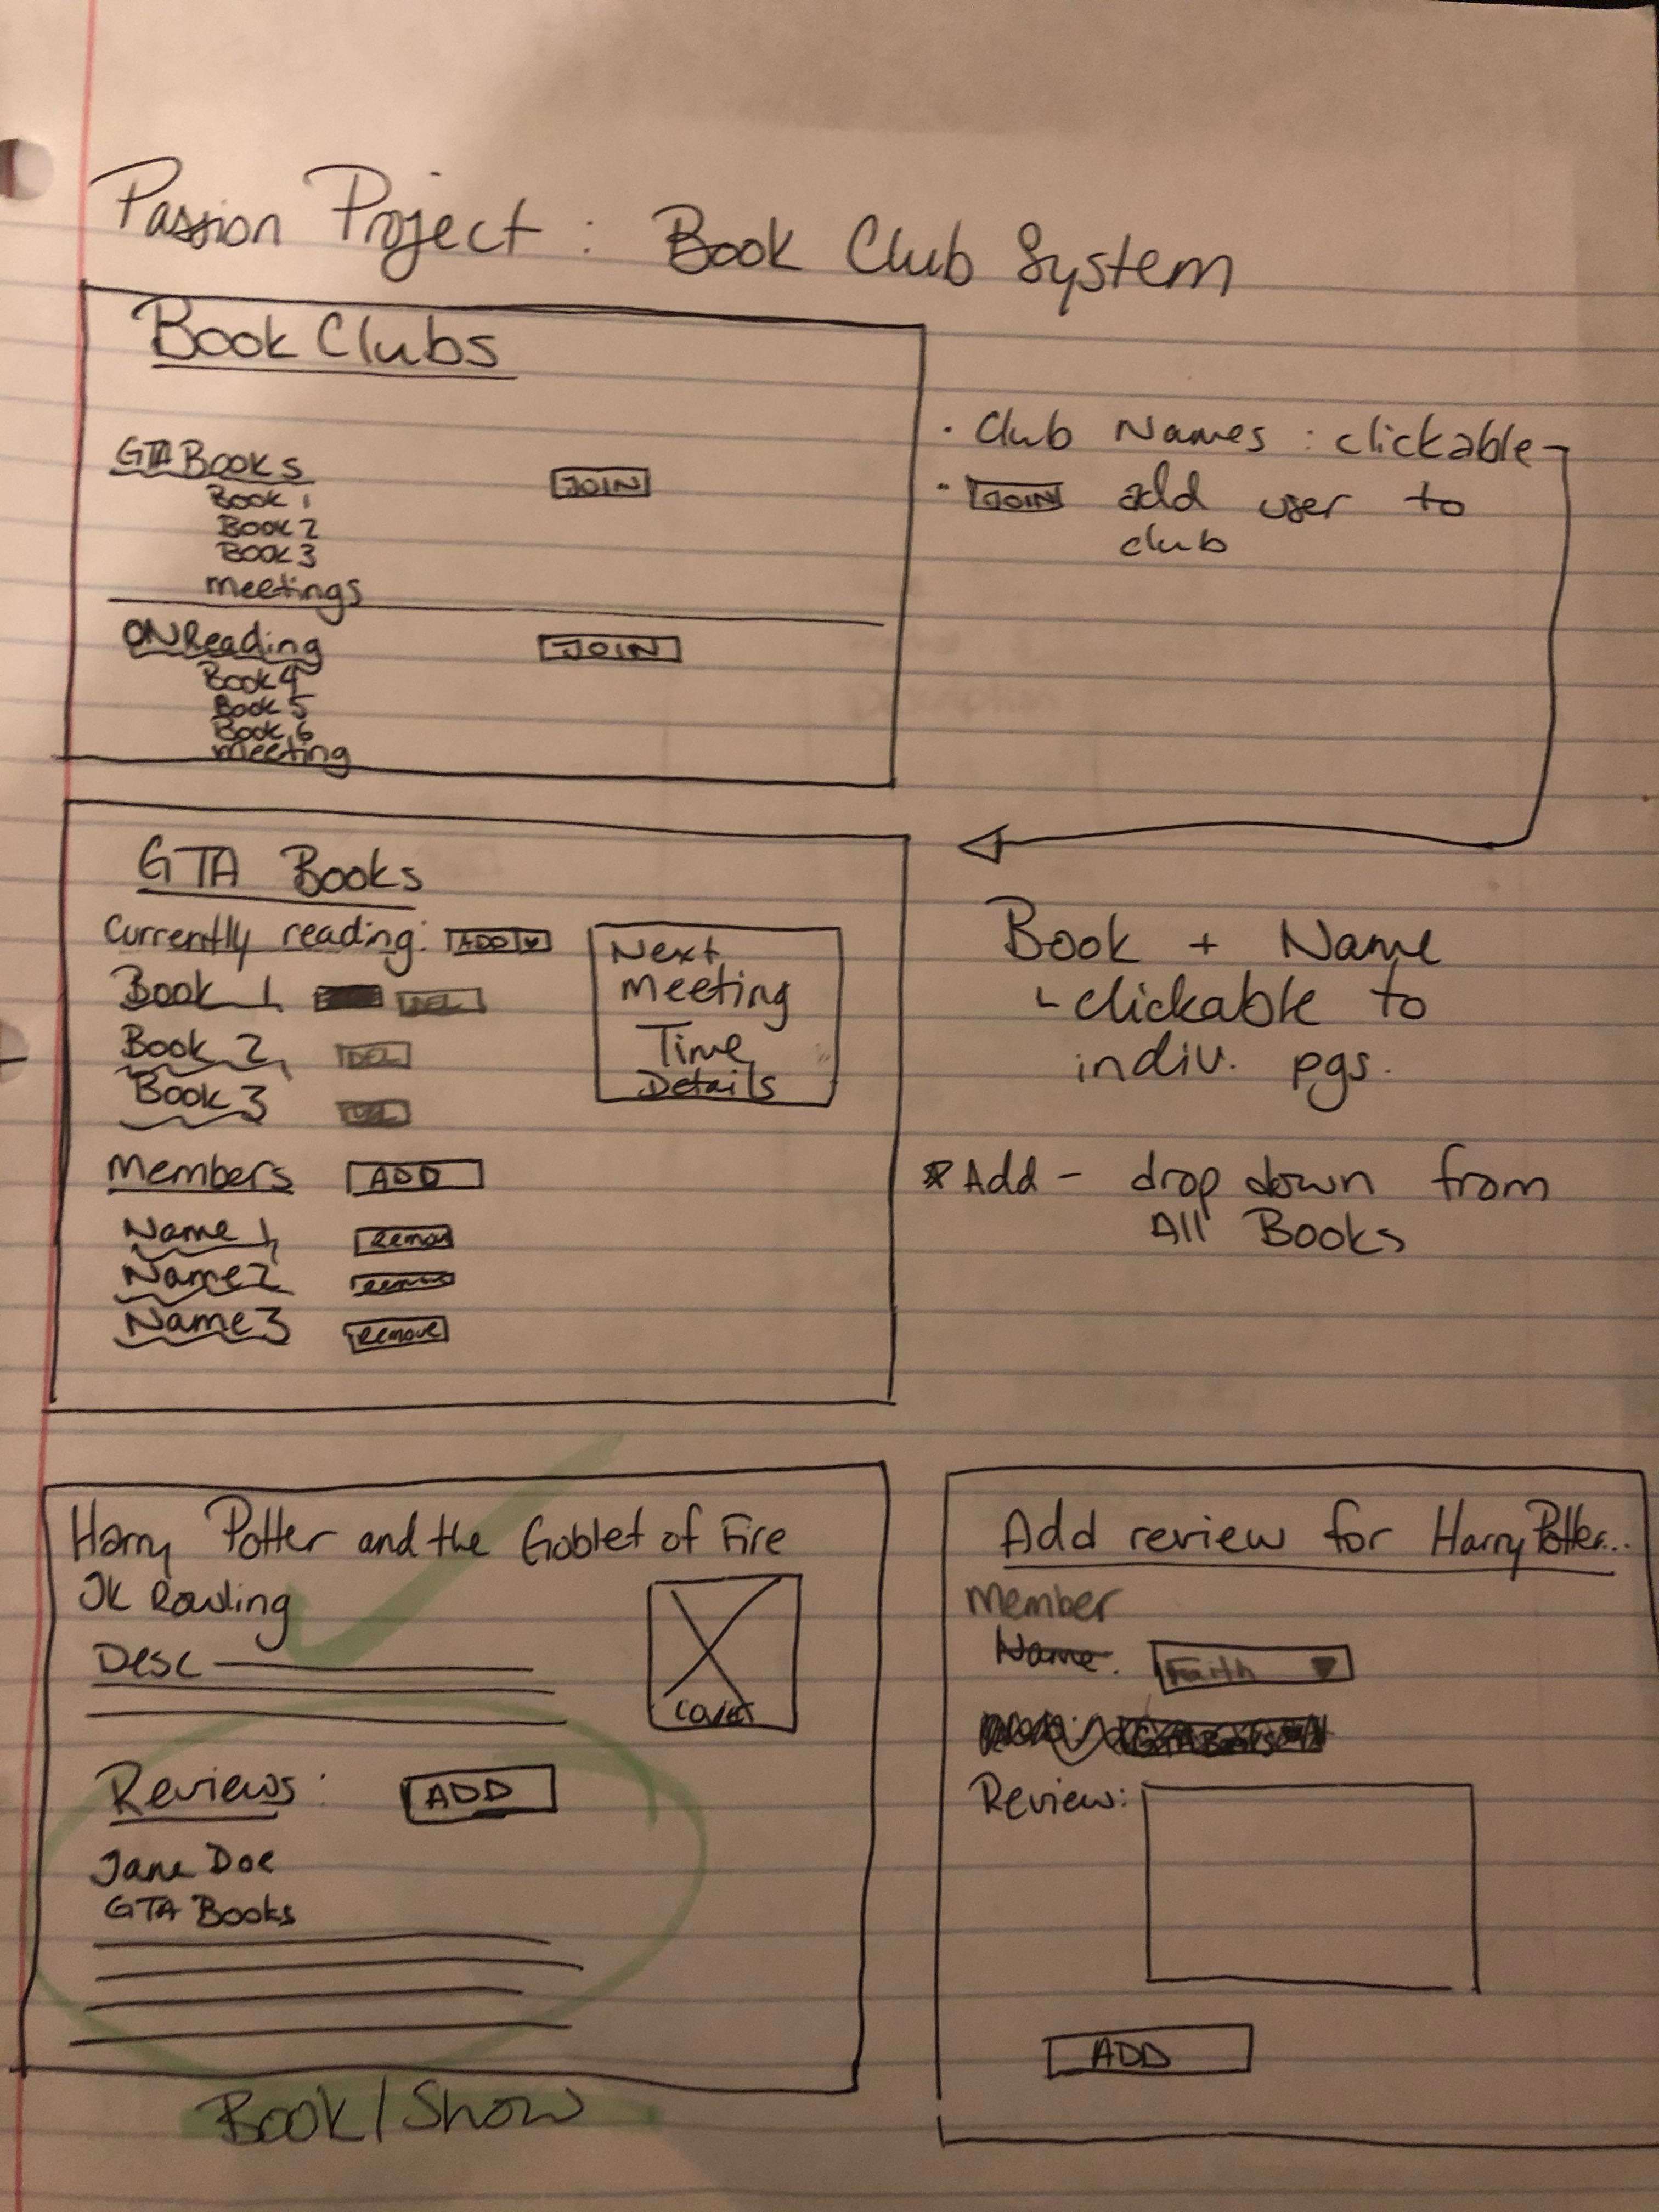 Passion Project : Book Club System
Book Clubs
GTA Books
JOIN
Book 1
Book 2
Book 3
meetings
ONReading
JOIN
Book 4
Book 5
Book 6
meeting
· Club Names : clickable
· JOIN add user to
club
GTA Books
Currently reading: ADD
Book 1 DEL
Book 2 DEL
Book 3 DEL
Next
Meeting
Time
Details
Members ADD
Name 1
Name 2
Name 3 Remove
Book + Name
clickable to
indiv. pgs.
* Add - drop down from
All Books
Harry Potter and the Goblet of Fire
JK Rowling
Desc
Cover
Reviews: ADD
Jane Doe
GTA Books
Book/Show
Add review for Harry Potter...
Member
Name. Faith
GTA Books
Review:
ADD